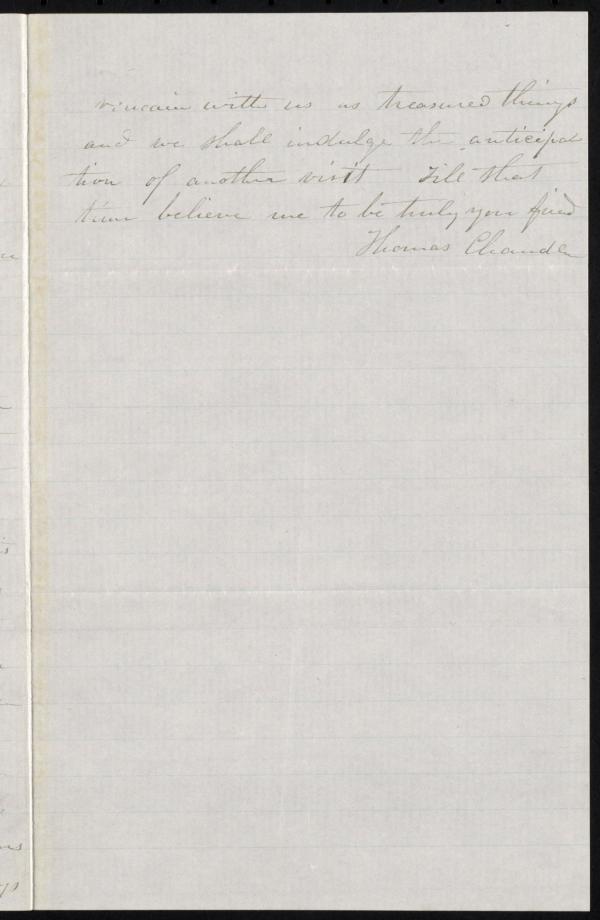 remain with us as treasured things
and we shall indulge the anticipa
tion of another visit Till that
time believe me to be truly your friend
Thomas Chandler